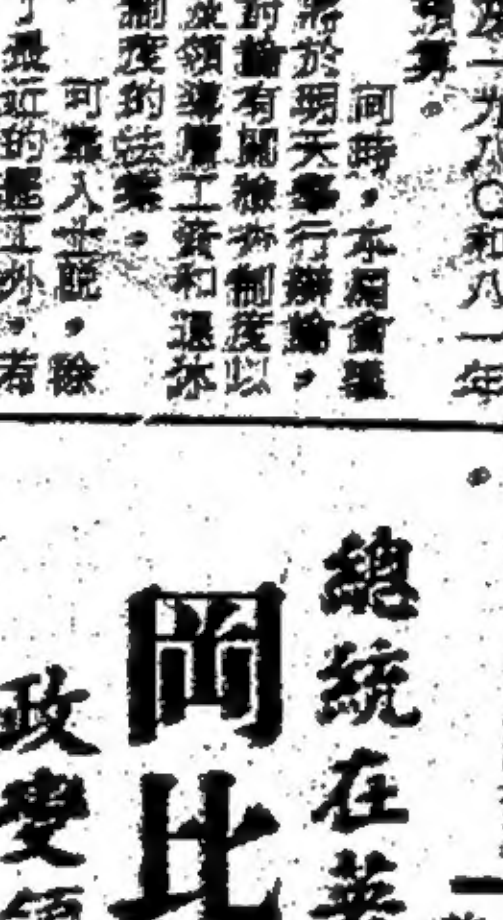 一九八〇和八一年
預算。
同時，本屆會議
將於明天舉行辯論，
討論有關 制度以
領導層工資和退休
制度的法案。
可靠人士說，除
了最近的罷工外，若
總統在英
岡比
政變領